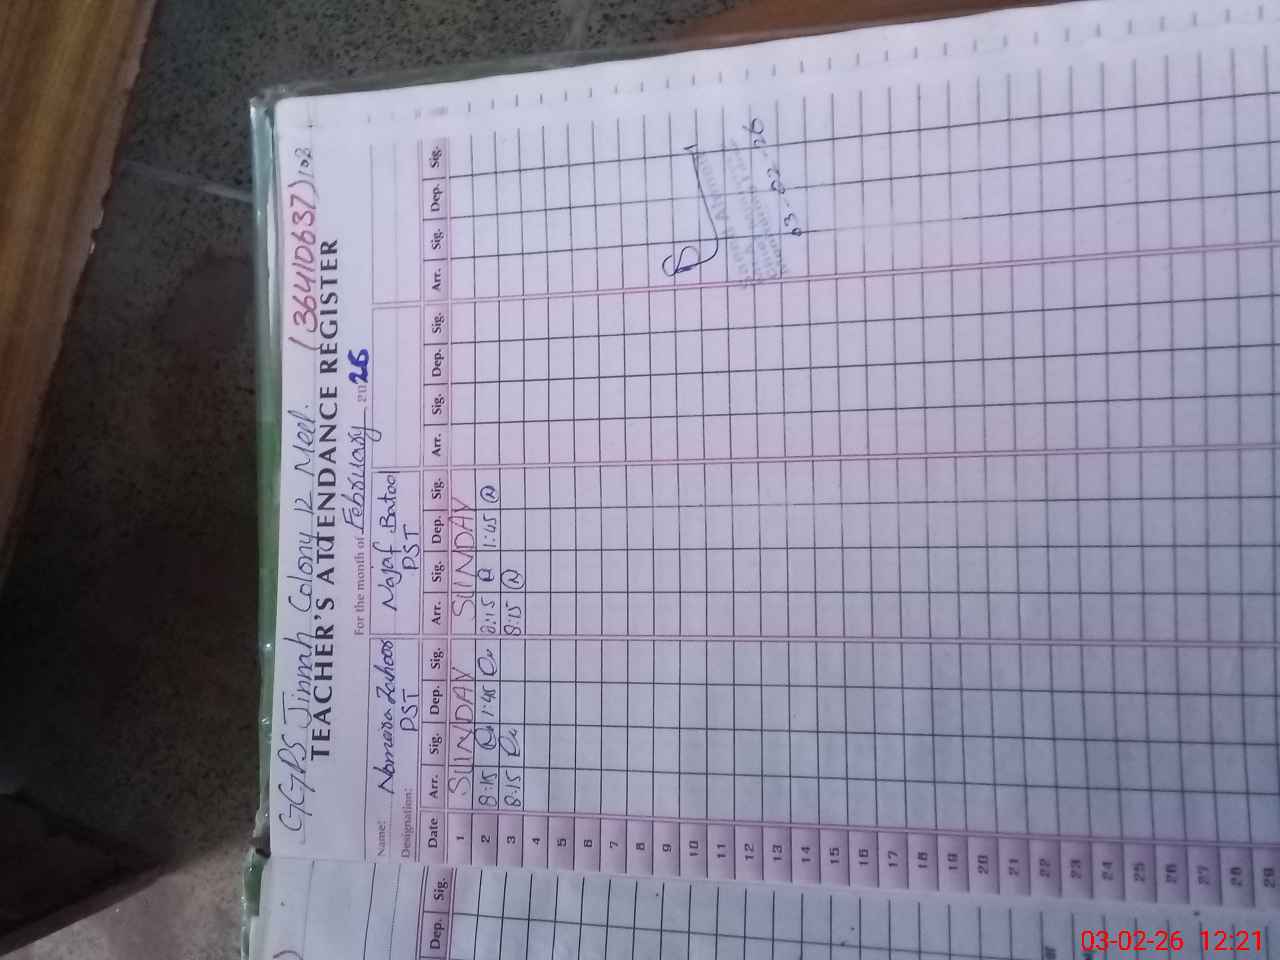 GGPS Jinnah Colony 12 Meel. (36410637) 103
TEACHER'S ATTENDANCE REGISTER
For the month of February 2026
Name: Nomeira Zahoor Najaf Batool
Designation: PST PST
Date Arr. Sig. Dep. Sig. Arr. Sig. Dep. Sig. Arr. Sig. Dep. Sig. Arr. Sig. Dep. Sig.
1 SUNDAY SUNDAY
2 8:15 1:45 8:15 1:45
3 8:15 8:15
4
5
6
7
8
9
10
11
12
13
14
15
16
17
18
19
20
21
22
23
24
25
26
27
28
29
03-02-26
Dep. Sig.
03-02-26 12:21